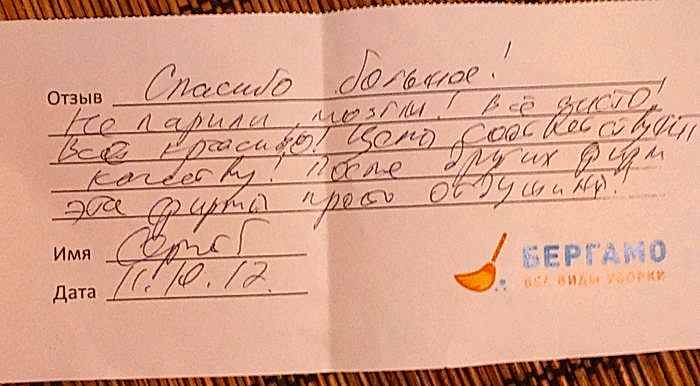 Отзыв Спасибо большое!
Не парили мозги! Всё чисто!
Всё красиво! Цена соответствует
качеству! После других фирм
эта фирма просто отдушина!
Имя Сергей
Дата 11.10.12
БЕРГАМО
ВСЕ ВИДЫ УБОРКИ